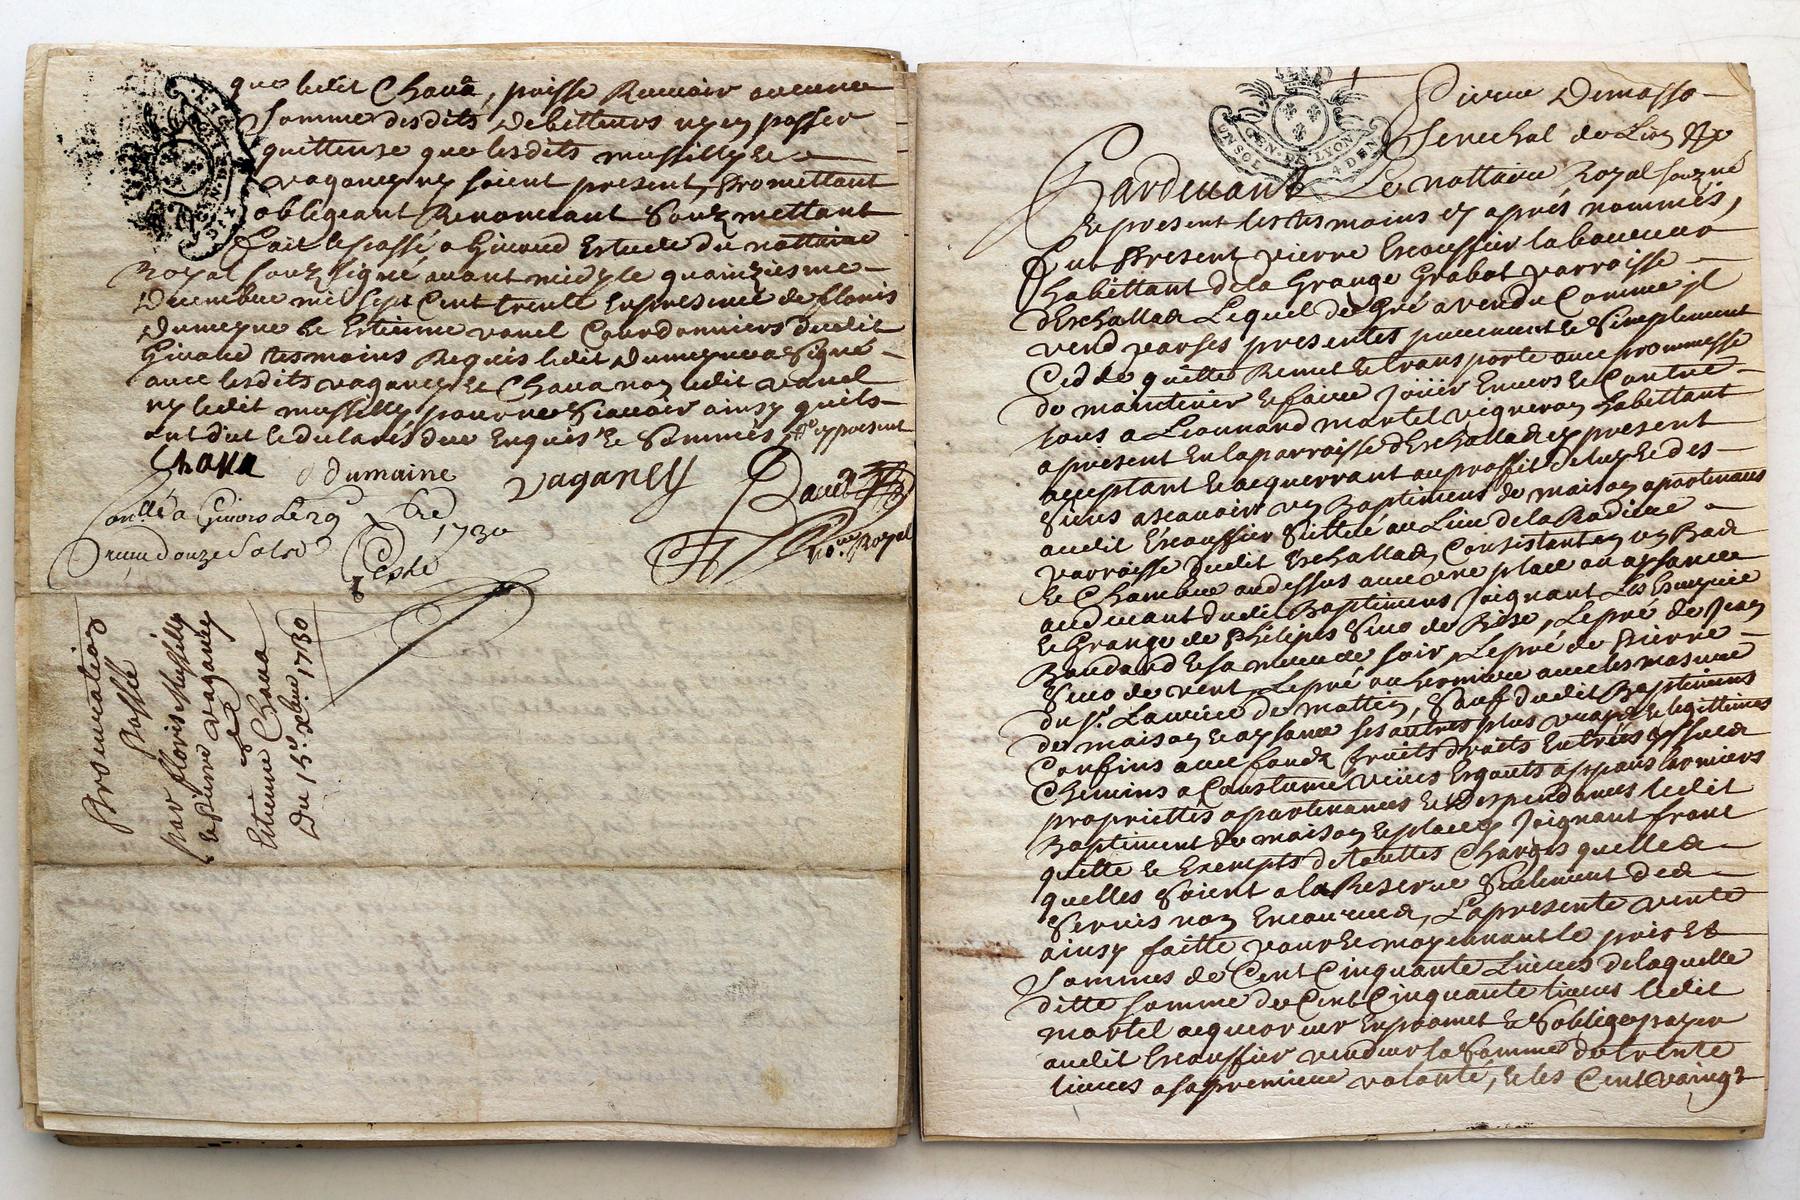 que ledit Chava, puisse Recevoir aucune
somme desdits debitteurs ny en passer
quittense que lesdits massilly &
vaganey ny soient present, Promettant
obligeant Renoncant Soubzmettant
fait & passé a Givord Estude du nottaire
Royal soubzsigné avant midy le quinziesme
Decembre mil sept cent trente En presence de
Dumeyne & Estienne vanel Cordonniers dudit
Givord tesmoins Requis ledit Dumeyne a Signé
avec lesdits vaganey & Chava non ledit vanel
ny ledit massilly pour ne Scavoir ainsy quils
ont dit & declarés de ce Enquis & Sommés
Chava dumaine vaganey
Conllé a Givors le 29 xbre 1730
Receu douze sols
no.re Royal
GEN. DE LYON
Passée
par floris
& Pierre vaganey
Estienne Chava
Du 15e. xbre. 1730
Pierre Demasso
Senechal de Lion
GEN. DE LYON
UN SOL 4 DEN
Pardevant Le nottaire Royal souzné
& present les tesmoins cy aprés nommés,
fut Present Pierre Escoffier laboureur
habittant de la Grange Grabot Parroisse
dEschallas Lequel de Gré a vendu Comme jl
vend par ses presentes purement & Simplement
Cedde quitte Remet & transporte avec prommesse
de maintenir & faire Jöüir Envers & Contre
tous a Leonnard martel vigneron habittant
a present En la parroisse dEschallas cy present
acceptant & acquerrant au proffit de luy & des
Siens ascavoir un Baptiment de maison apartenant
audit Escoffier Sittué au Lieu de la
Parroisse dudit Eschallas, Consistant en un Bas
& Chambre au dessus avec une place ou aysance
au devant dudit Baptiment Joignant Les
& Grange de Philipes de Bise, Le pré de Jean
de soir, Le pré de Pierre
de vent, Le pré ou verniere
du Sr. de mattin, Sauf dudit Baptiment
de maison & aysance ses autres plus vrays & legittimes
Confins avec fonds fruits droits Entrées & Issues
Chemins a Coustume
proprietés apartenances & Despendances ledit
Baptiment de maison & place y Joignant franc
quitte & Exempts de touttes Charges quelles
quelles Soient a la Reserve Seulement des
Servis non Encourus, La presente vente
ainsy faitte pour & moyennant le prix &
sommes de Cent Cinquante Livres de laquelle
ditte somme de Cent Cinquante livres ledit
martel acquereur En promet & Soblige payer
audit Escoffier vendeur la Somme de trente
livres a sa premiere volonté, & les Cent vaingt